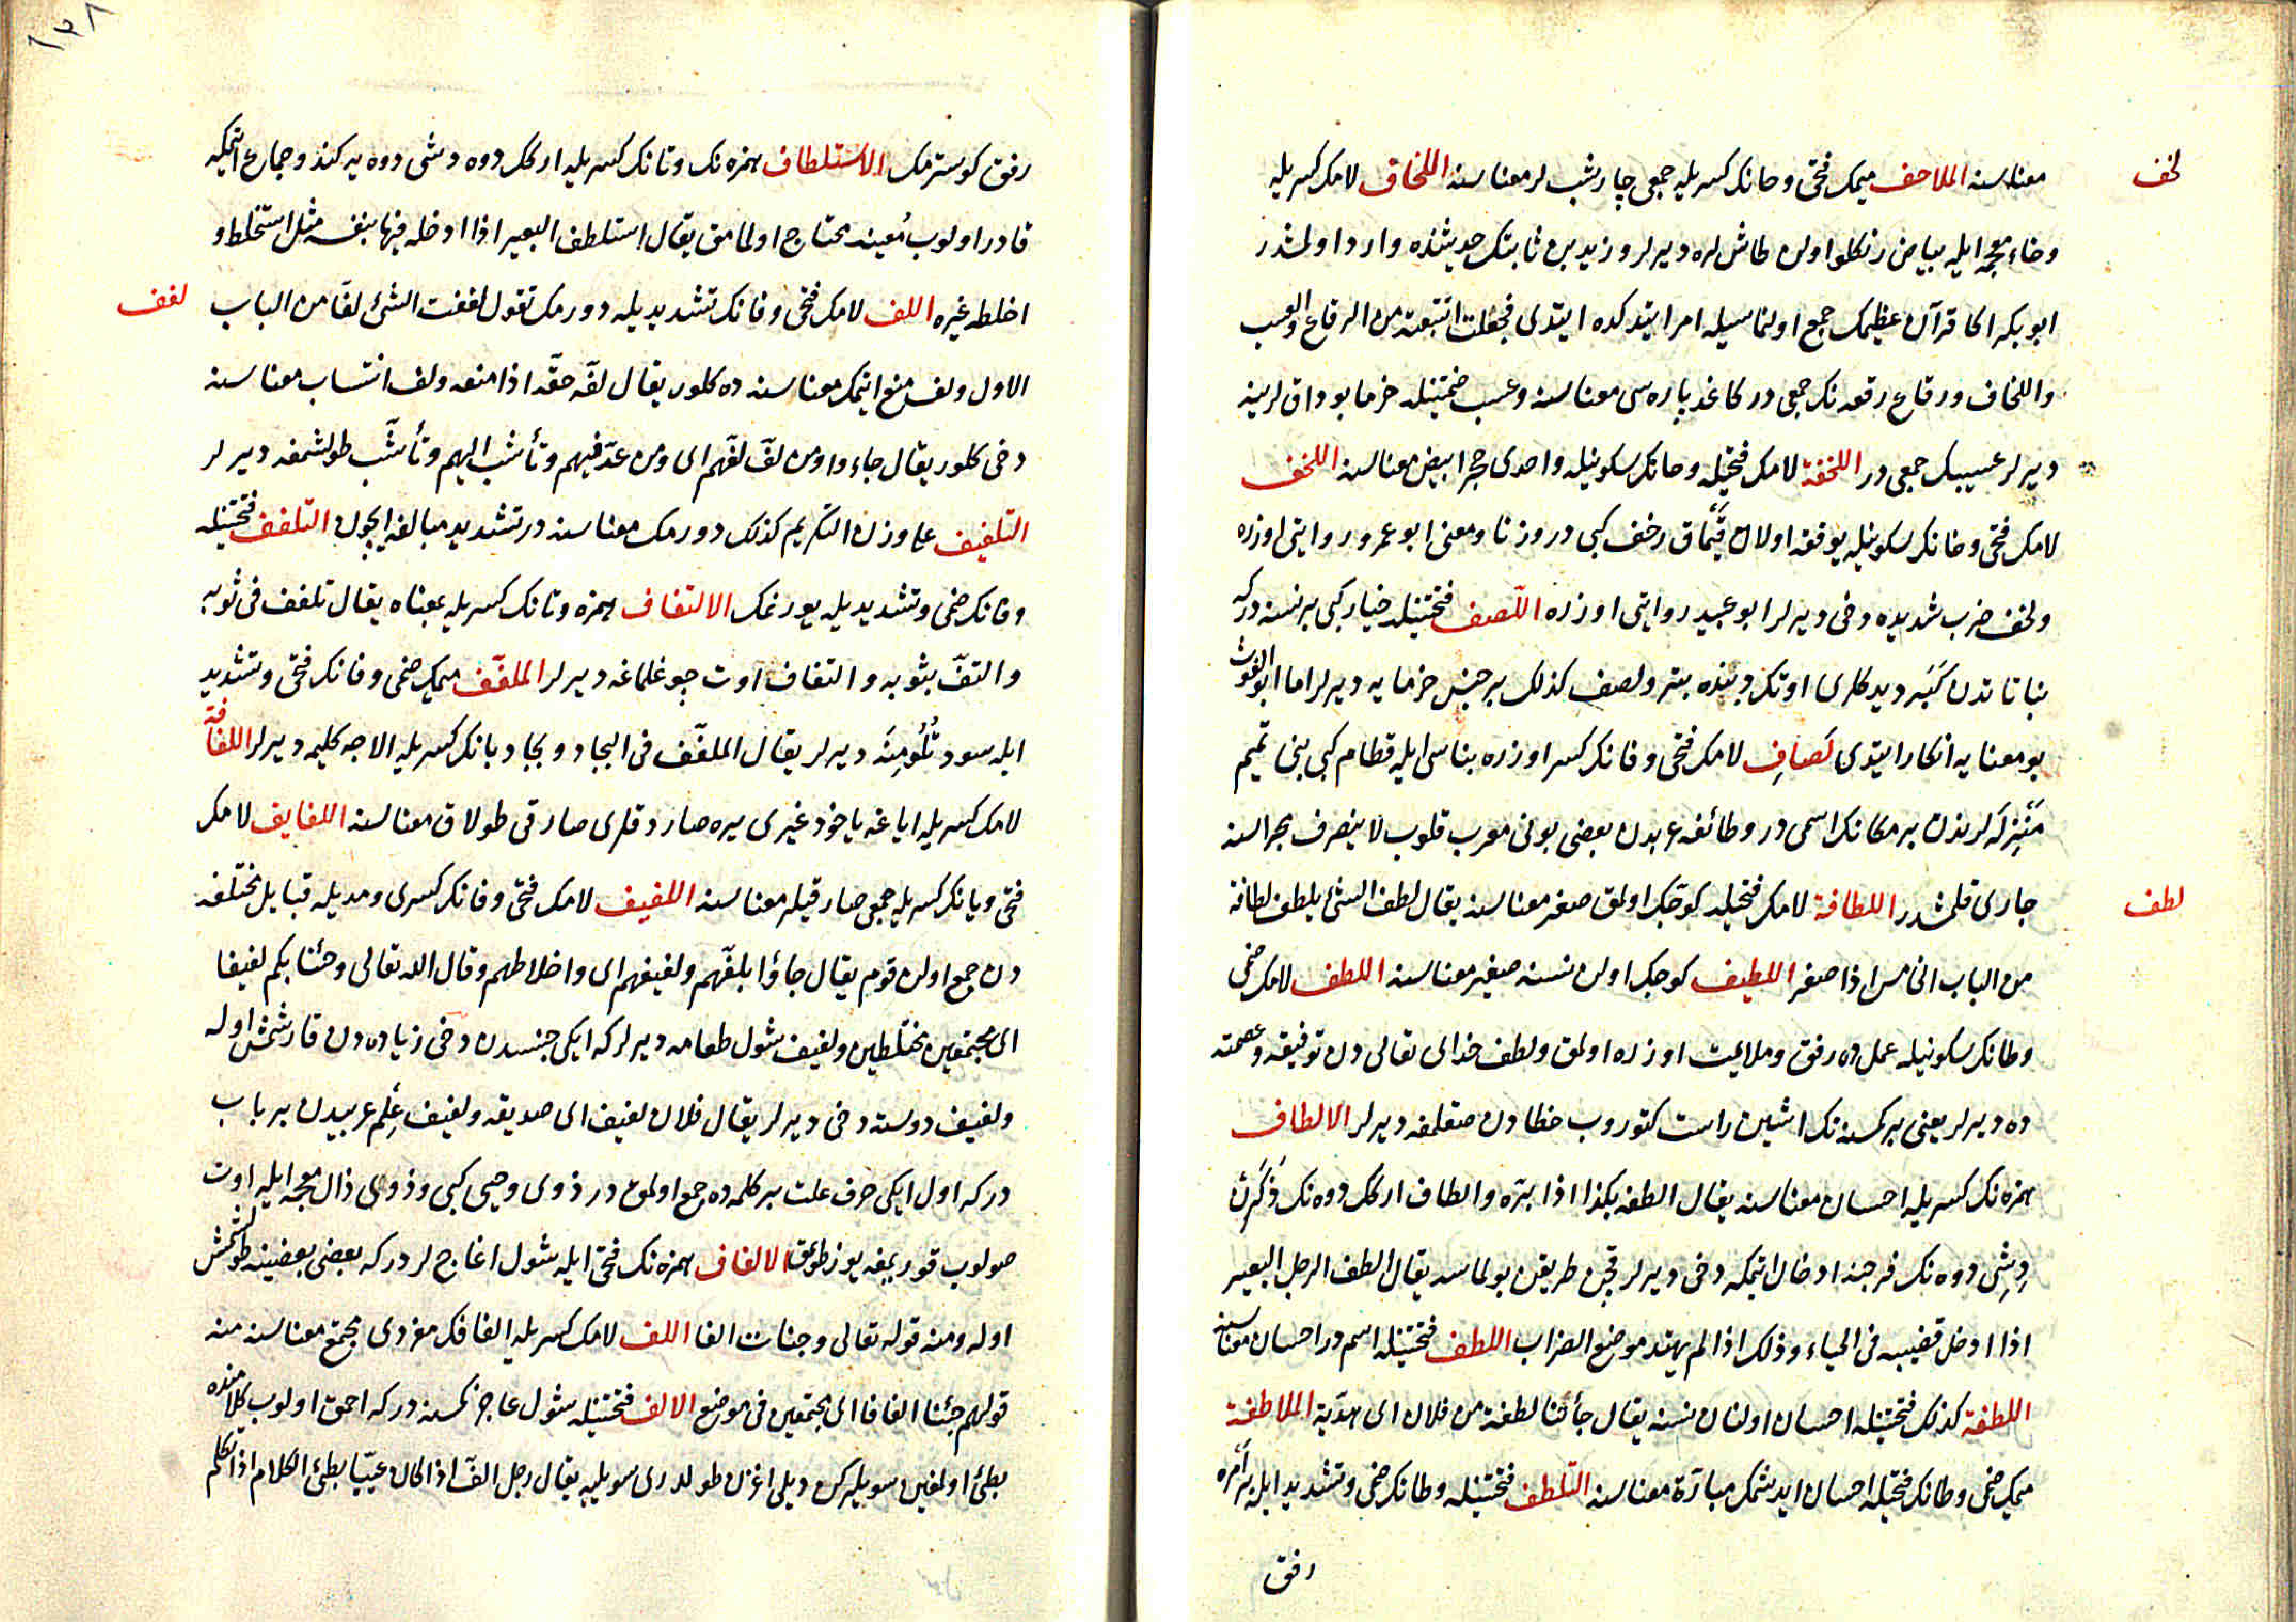 لخف
معناسنه الملاحف ميمك فتحى وحانك كسريله جمعى چارشب لر معناسنه اللخاف لامك كسريله
وخاء معجمه ايله بياض رنكلو اولن طاش لره ديرلر وزيد بن ثابتك حديثنده وارد اولمشدر
ابو بكر اكا قرآن عظيمك جمع اولنماسيله امر ايتدكده ايتدى فجعلت اتتبعه من الرقاع والعسب
واللخاف ورقاع رقعه نك جمعى در كاغد پاره سى معناسنه وعسب ضمتينله خرما بوداق لرينه
ديرلر عسيبك جمعى در اللخفة لامك فتحيله وخانك سكونيله واحدى حجر ابيض معناسنه اللخف
لامك فتحى وخانك سكونيله يوفقه اولان قيماق رخف كبى در وزنا ومعنى ابو عمرو روايتى اوزره
ولخف ضرب شديده دخى ديرلر ابو عبيد روايتى اوزره اللصف فتحتينله خيار كبى بر نسنه دركه
نباتاتدن كبر ديدكلرى اوتك دبنده بتر ولصف كذلك بر جنس خرمايه ديرلر اما ابو الغوث
بو معنايه انكار ايتدى لصاف لامك فتحى وفانك كسر اوزره بناسى ايله قطام كبى بنى تميم
منزللرندن بر مكانك اسمى در وطائفه عربدن بعضى بونى معرب قلوب لا ينصرف مجراسنه
لطف
جارى قلمشدر اللطافة لامك فتحيله كوچك اولمق صغر معناسنه يقال لطف الشئ يلطف لطافة
من الباب الخامس اذا صغر اللطيف كوجك اولن نسنه صغير معناسنه اللطف لامك ضمى
وطانك سكونيله عمل ده رفق وملايمت اوزره اولمق ولطف خداى تعالى دن توفيقه وعصمته
ده ديرلر يعنى بر كمسنه نك اشين راست كتوروب خطادن صقلمغه ديرلر الالطاف
همزه نك كسريله احسان معناسنه يقال الطفه بكذا اذا بره والطاف اركك دوه نك ذكرن
دشى دوه نك فرجنه ادخال اتمكه دخى ديرلر قچن طريقن بولماسه يقال الطف الرجل البعير
اذا ادخل قضيبه فى الحياء وذلك اذا لم يهتد موضع الضراب اللطف فتحتينله اسم در احسان معناسنه
اللطفة كذلك فتحتينله احسان اولنان نسنه يقال جأتنا لطفة من فلان اى هدية الملاطفة
ميمك ضمى وطانك فتحيله احسان ايدشمك مبارة معناسنه التلطف فتحتينله وطانك ضمى وتشديد ايله بر امره
رفق
١٣٨
رفق كوسترمك الاستلطاف همزه نك وتانك كسريله اركك دوه دشى دوه يه كندو جماع اتمكه
قادر اولوب معينه محتاج اولمامق يقال استلطف البعير اذا ادخله فيها بنفسه مثل استخلط و
لفف
اخلطه غيره اللف لامك فتحى وفانك تشديديله دورمك تقول لففت الشئ لفا من الباب
الاول ولف منع اتمك معناسنه ده كلور يقال لفه حقه اذا منعه ولف انتساب معناسنه
دخى كلور يقال جاءوا ومن لف لفهم اى ومن عد فيهم وتأشب اليهم وتأشب طولشمغه ديرلر
التلفيف على وزن التكريم كذلك دورمك معناسنه در تشديد مبالغه ايچون التلفف فتحتينله
وفانك ضمى وتشديديله بورنمك الالتفاف همزه وتانك كسريله بمعناه يقال تلفف فى ثوبه
والتف بثوبه والتفاف اوت چوغلماغه ديرلر الملفف ميمك ضمى وفانك فتحى وتشديد
ايله سود تلومنه ديرلر يقال الملفف فى البجاد وبجاد بانك كسريله الاجه كليمه ديرلر اللفافة
لامك كسريله اياغه ياخود غيرى يره صاردقلرى صارقى طولاق معناسنه اللفايف لامك
فتحى ويانك كسريله جمعى صارقيلر معناسنه اللفيف لامك فتحى وفانك كسرى ومديله قبايل مختلفه
دن جمع اولن قوم يقال جاؤا بلفهم ولفيفهم اى واخلاطهم وقال الله تعالى وجئنا بكم لفيفا
اى مجتمعين مختلطين ولفيف شول طعامه ديرلر كه ايكى جنسدن دخى زياده دن قارشمش اوله
ولفيف دوسته دخى ديرلر يقال فلان لفيف اى صديقه ولفيف علم عربيدن بر باب
دركه اول ايكى حرف علت بر كلمه ده جمع اولمق در ذوى وحيى كبى وذوى ذال معجمه ايله اوت
صولوب قوريمغه يوز طوتمق الالفاف همزه نك فتحى ايله شول اغاج لر دركه بعضى بعضينه طولشمش
اوله ومنه قوله تعالى وجنات الفافا اللف لامك كسريله الفافك مفردى مجتمع معناسنه منه
قولهم جئنا الفافا اى مجتمعين فى موضع الالف فتحتينله شول عاجز كمسنه دركه احمق اولوب كلامنده
بطئ اولغين سويليرك ديلى اغزن طولدرى سويليه يقال رجل الف اذا كان عييا بطئ الكلام اذا تكلم